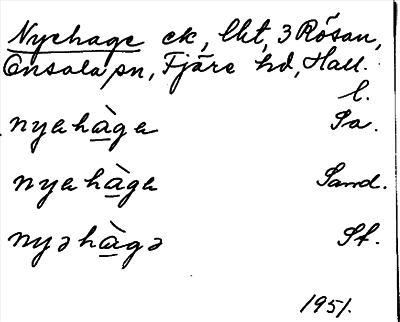 Nyehage ck, lht, 3 Rösan,
Onsala sn, Fjäre hd, Hall.
l.
nyahàga Sa.
nyahàga Sand.
nyəhàgə St.
1951.